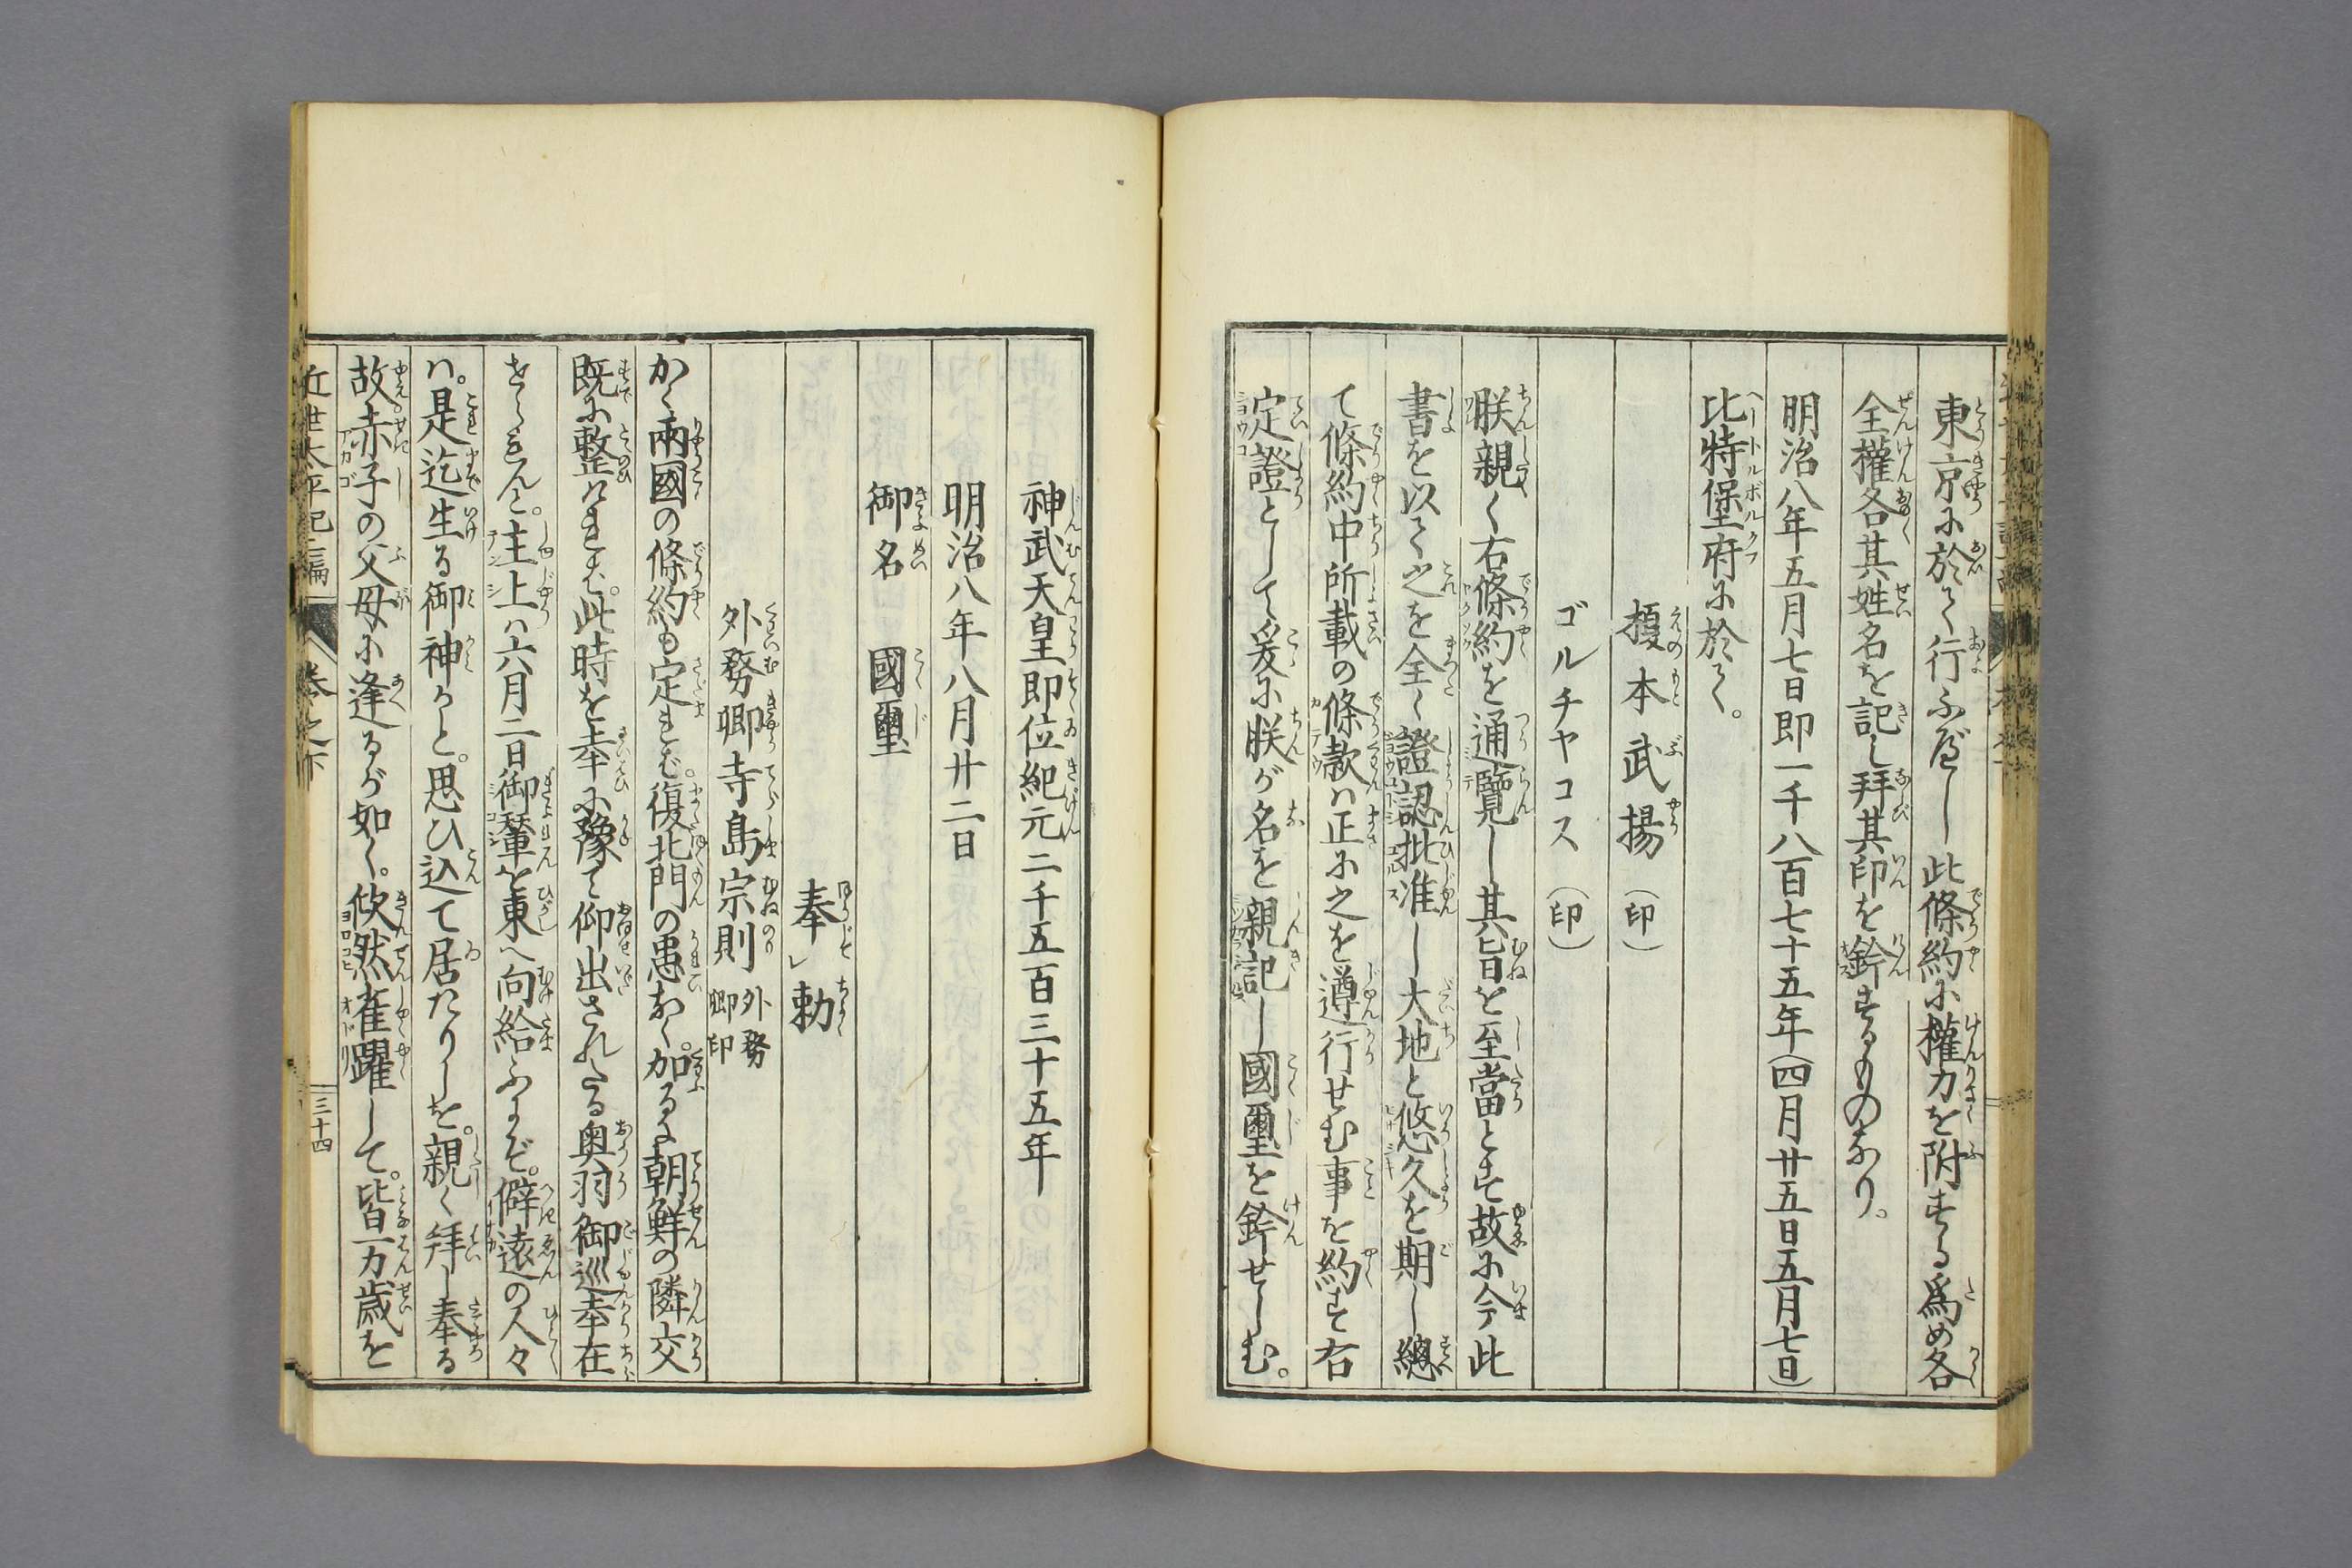 東京に於て行ふべし此條約に權力を附する爲め各
全權各其姓名を記し拜其印を鈐するものなり。
明治八年五月七日即一千八百七十五年(四月廿五日五月七日)
比特堡府に於て。
榎本武揚(印)
ゴルチヤコス(印)
朕親く右條約を通覽し其旨を至當とす故に今此
書を以て之を全く證認批准し大地と悠久を期し總
て條約中所載の條款ハ正に之を遵行せむ事を約す右
定證として爰に朕が名を親記し國璽を鈐せしむ。
神武天皇即位紀元二千五百三十五年
明治八年八月廿二日
御名 國璽
奉レ勅
外務卿寺島宗則 外務卿印
かく兩國の條約も定れバ。復北門の患なく。加るに朝鮮の隣交
既に整ひけれバ。此時を幸に豫て仰出されたる奥羽御巡幸在
せられんと。主上ハ六月二日御輦を東へ向給ふにぞ。僻遠の人々
ハ。是迄生る御神かと。思ひ込て居たりしを。親く拜し奉る
故。赤子の父母に逢るが如く。欣然雀躍して。皆万歳を
近世太平記二編 卷之下
三十四